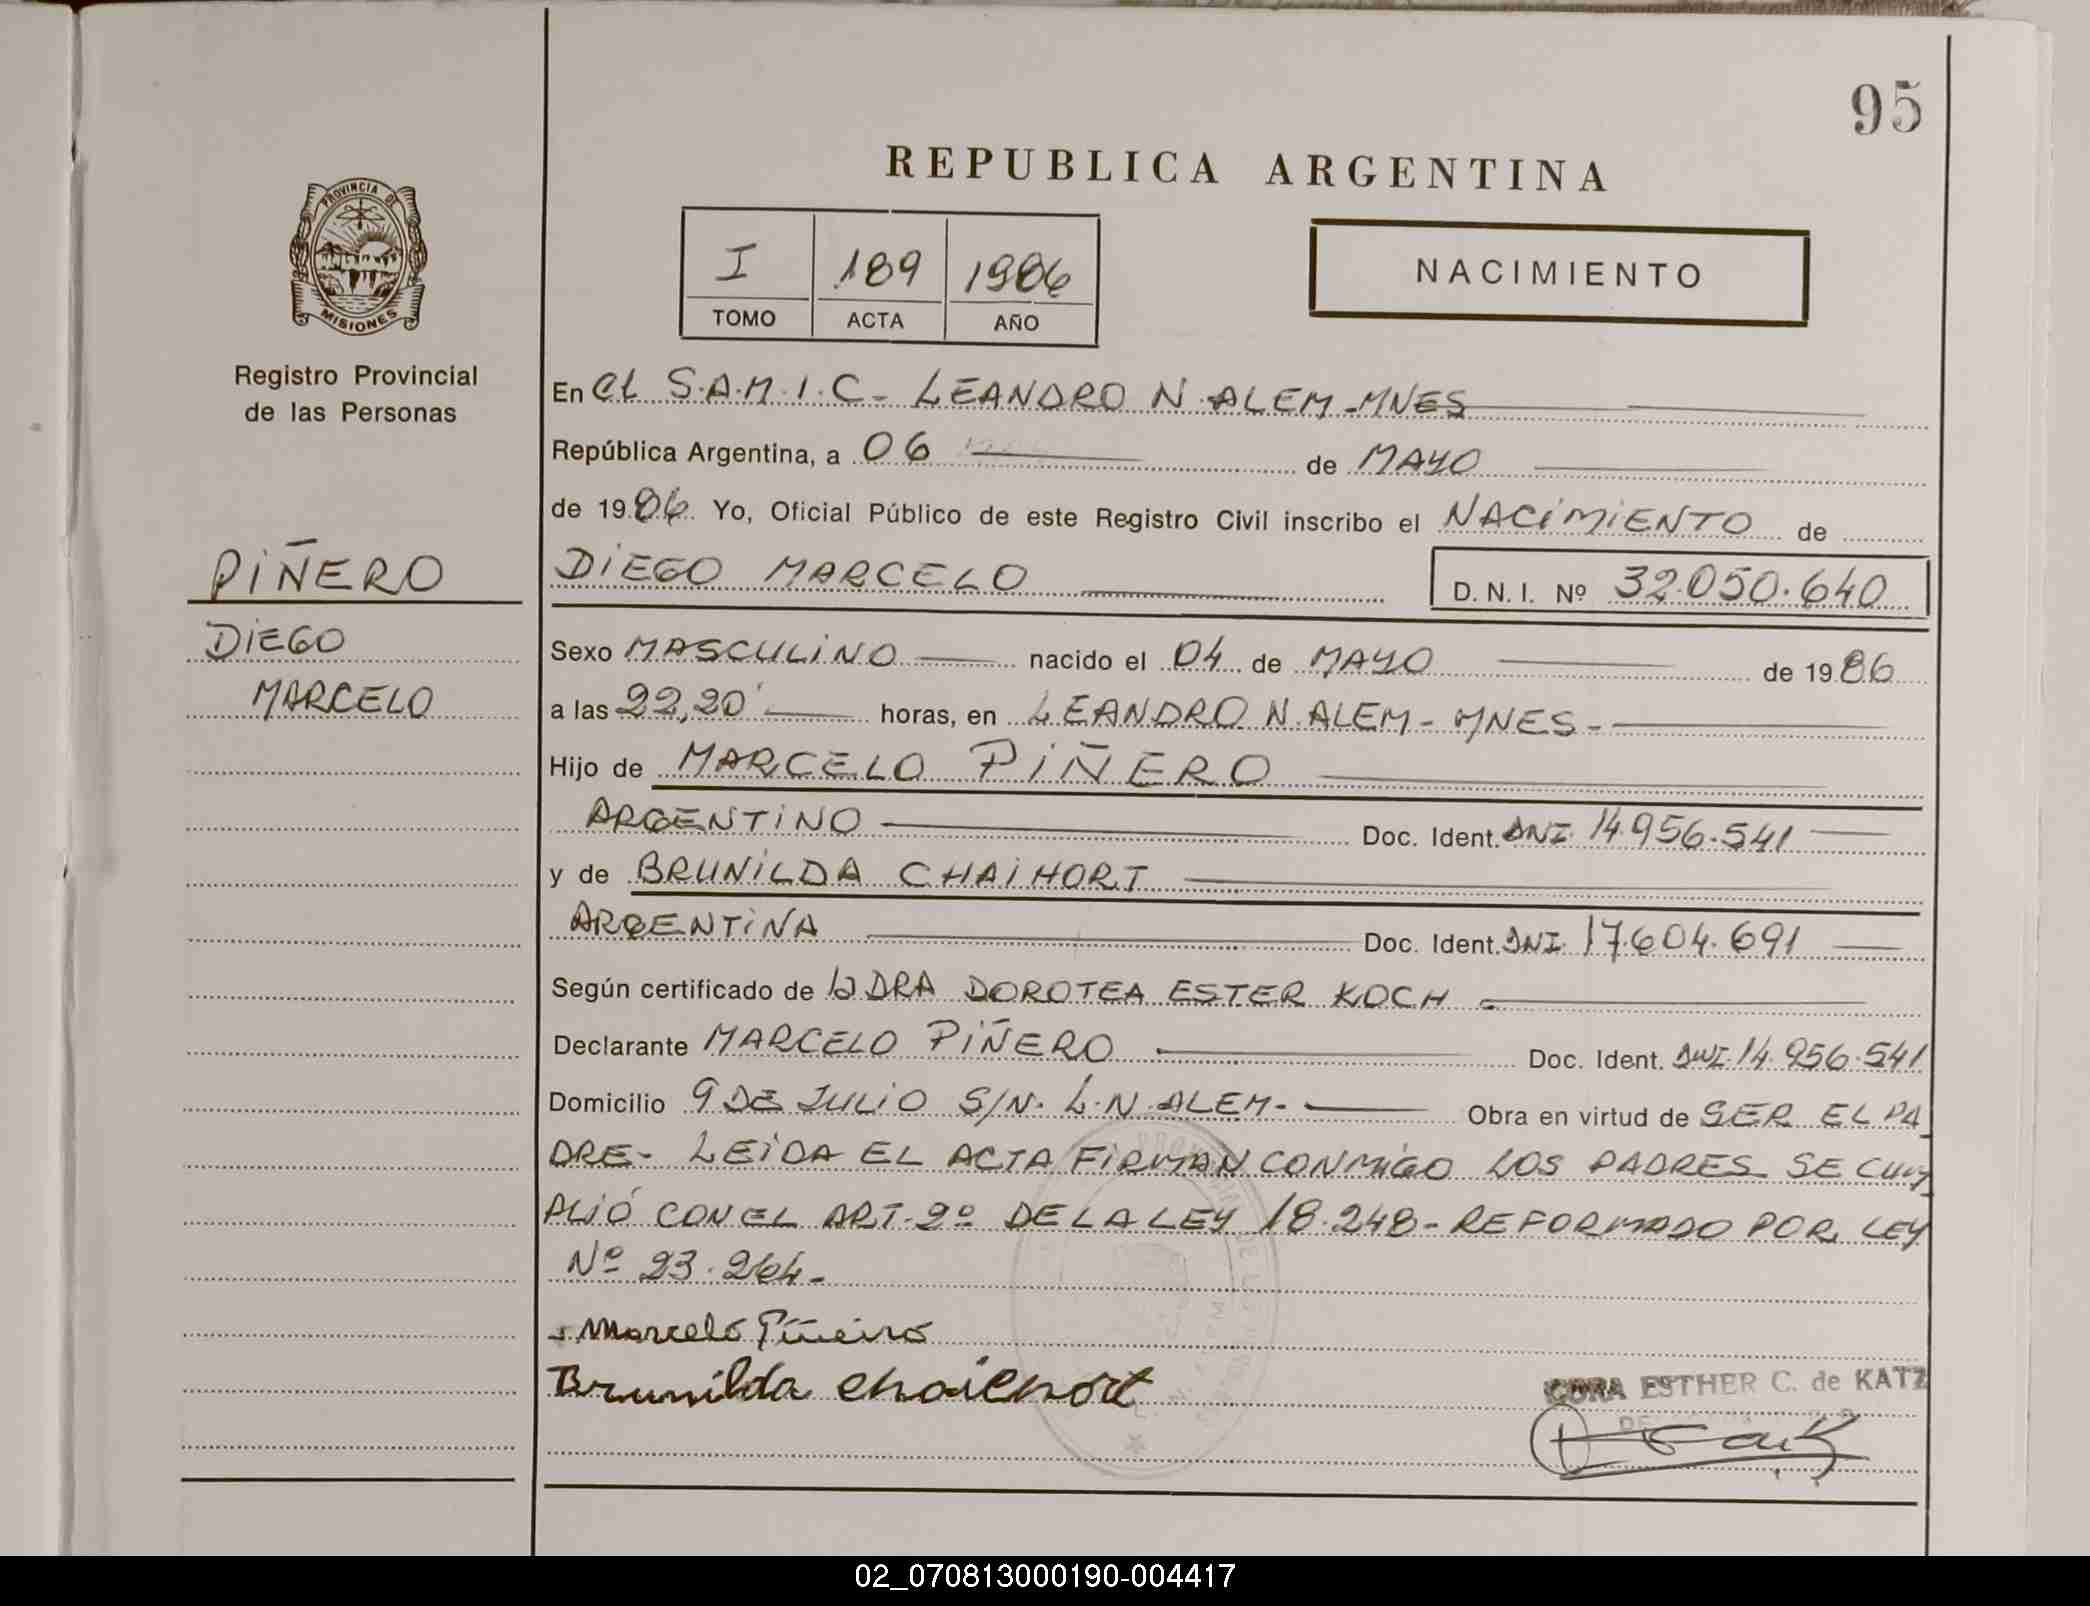 95
REPUBLICA ARGENTINA
PROVINCIA DE
MISIONES
Registro Provincial
de las Personas
I 189 1986
TOMO ACTA AÑO
NACIMIENTO
En el S.A.M.I.C- LEANDRO N. ALEM-MNES
República Argentina, a 06 de MAYO
de 1986 Yo, Oficial Público de este Registro Civil inscribo el NACIMIENTO de
PIÑERO
DIEGO MARCELO D. N. I. Nº 32.050.640
DIEGO
MARCELO
Sexo MASCULINO nacido el 04 de MAYO de 1986
a las 22,20' horas, en LEANDRO N. ALEM- MNES-
Hijo de MARCELO PIÑERO
ARGENTINO Doc. Ident. DNI. 14.956.541
y de BRUNILDA CHAIHORT
ARGENTINA Doc. Ident. DNI. 17.604.691
Según certificado de la DRA DOROTEA ESTER KOCH
Declarante MARCELO PIÑERO Doc. Ident. DNI. 14.956.541
Domicilio 9 DE JULIO S/N. L.N.ALEM- Obra en virtud de SER EL PA
DRE- LEIDA EL ACTA FIRMAN CONMIGO LOS PADRES SE CUM
PLIÓ CON EL ART-2º DE LA LEY 18.248- REFORMADO POR LEY
Nº 23.264-
Marcelo Piñeiro
Brunilda chaihort
CORA ESTHER C. de KATZ
02_070813000190-004417